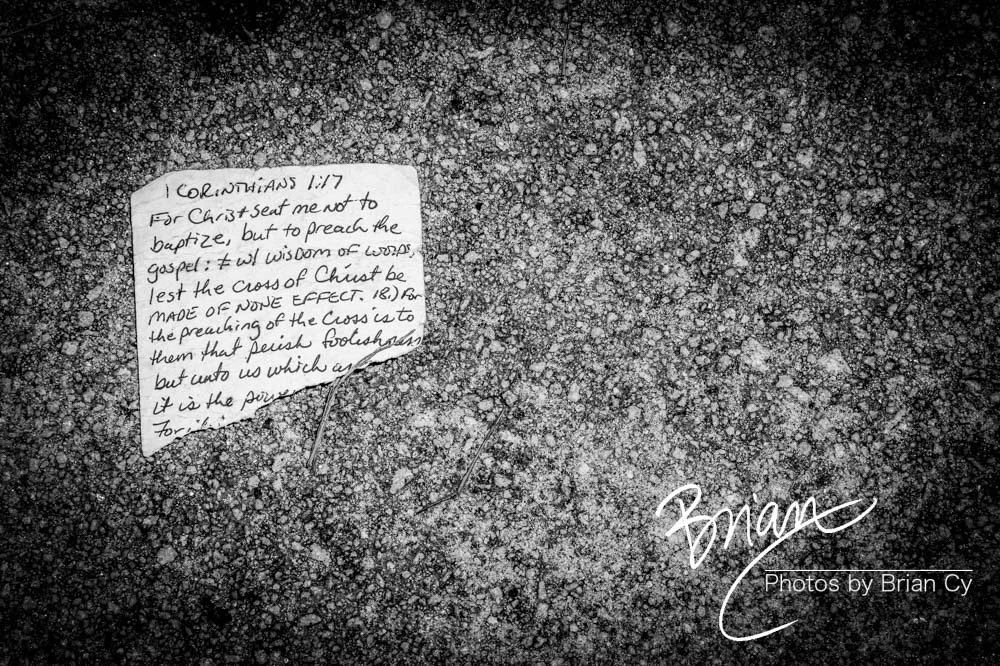 1 CORINTHIANS 1:17
For Christ sent me not to
baptize, but to preach the
gospel: ≠ w/ wisdom of words,
lest the cross of Christ be
MADE OF NONE EFFECT. 18.) For
the preaching of the Cross is to
them that perish foolishness
but unto us which
it is the
For
Brian
Photos by Brian Cy